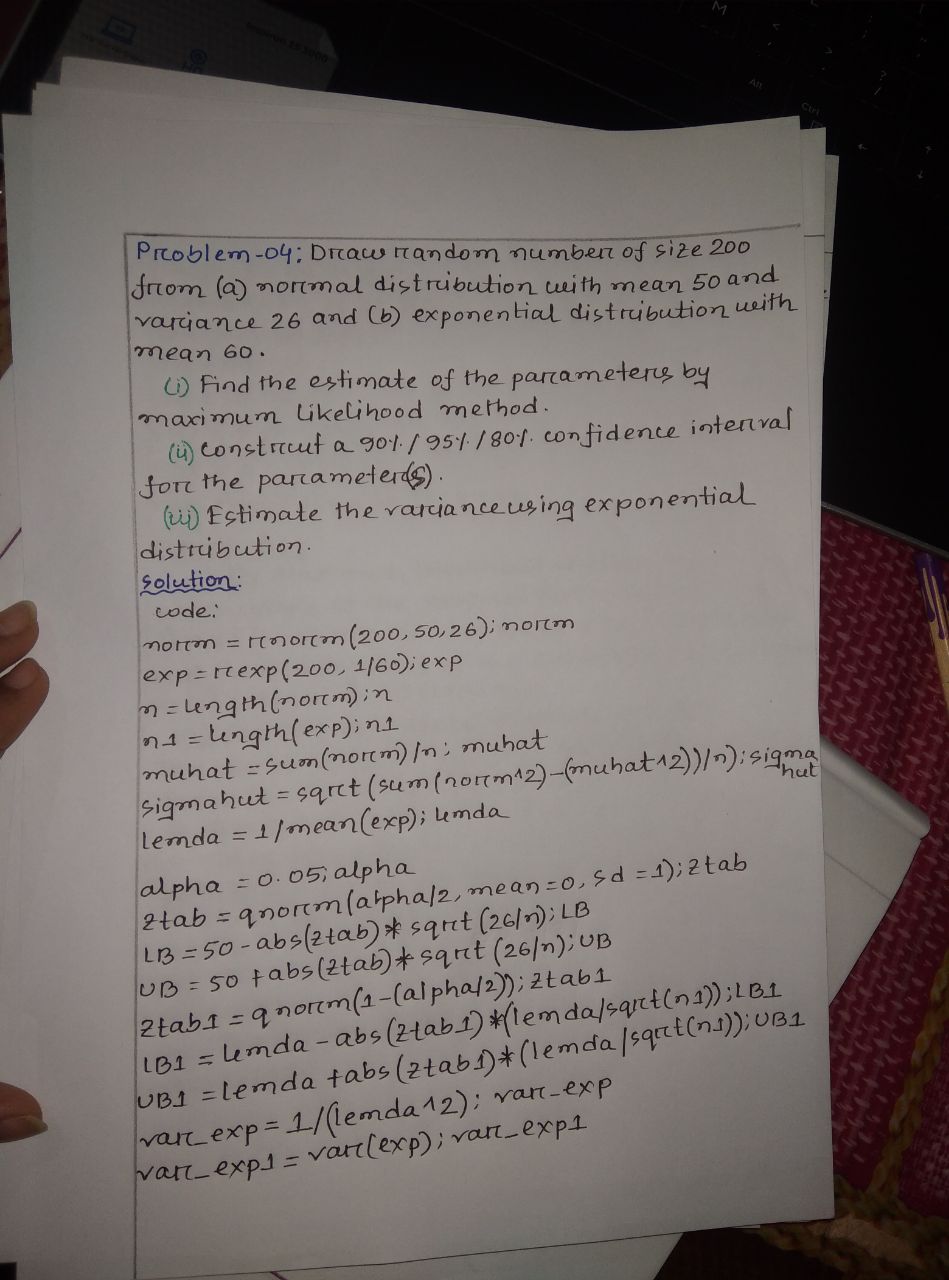 M
Alt
Ctrl
Problem-04: Draw random number of size 200
from (a) normal distribution with mean 50 and
variance 26 and (b) exponential distribution with
mean 60.
(i) Find the estimate of the parameters by
maximum likelihood method.
(ii) construct a 90% / 95% / 80% confidence interval
for the parameter(s).
(iii) Estimate the variance using exponential
distribution.
solution:
code:
norm = rnorm(200, 50, 26); norm
exp = rexp(200, 1/60); exp
n = length(norm); n
n1 = length(exp); n1
muhat = sum(norm)/n; muhat
sigmahut = sqrt(sum(norm^2)-(muhat^2))/n); sigma
hut
lemda = 1/mean(exp); lemda
alpha = 0.05; alpha
ztab = qnorm(alpha/2, mean=0, sd=1); ztab
LB = 50 - abs(ztab) * sqrt(26/n); LB
UB = 50 + abs(ztab) * sqrt(26/n); UB
ztab1 = qnorm(1-(alpha/2)); ztab1
LB1 = lemda - abs(ztab1)*(lemda/sqrt(n1)); LB1
UB1 = lemda + abs(ztab1)*(lemda/sqrt(n1)); UB1
var_exp = 1/(lemda^2); var_exp
var_exp1 = var(exp); var_exp1